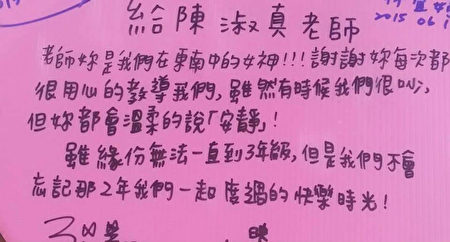 2015 06 1
給陳淑真老師
老師妳是我們在東南中的女神!!!謝謝妳每次都
很用心的教導我們,雖然有時候我們很吵,
但妳都會溫柔的說「安靜」!
雖緣份無法一直到3年級,但是我們不會
忘記那2年我們一起度過的快樂時光!